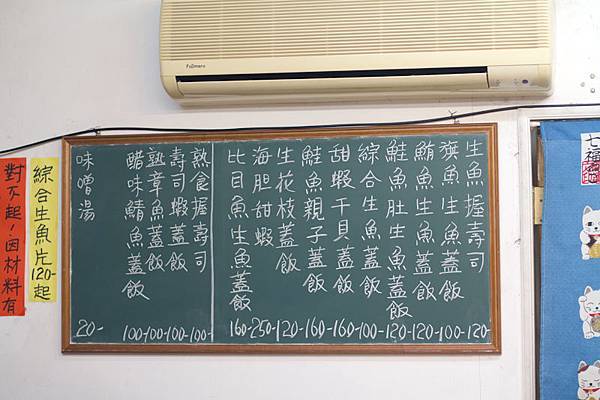 Fujimaru
生魚握壽司 120-
旗魚生魚蓋飯 100-
鮪魚生魚蓋飯 120-
鮭魚肚生魚蓋飯 120-
綜合生魚蓋飯 100-
甜蝦干貝蓋飯 160-
鮭魚親子蓋飯 160-
生花枝蓋飯 120-
海胆甜蝦 250-
比目魚生魚蓋飯 160-
熟食握壽司 100-
壽司蝦蓋飯 100-
熟章魚蓋飯 100-
醋味鯖魚蓋飯 100-
味噌湯 20-
綜合生魚片120-起
對不起!因材料有
七福